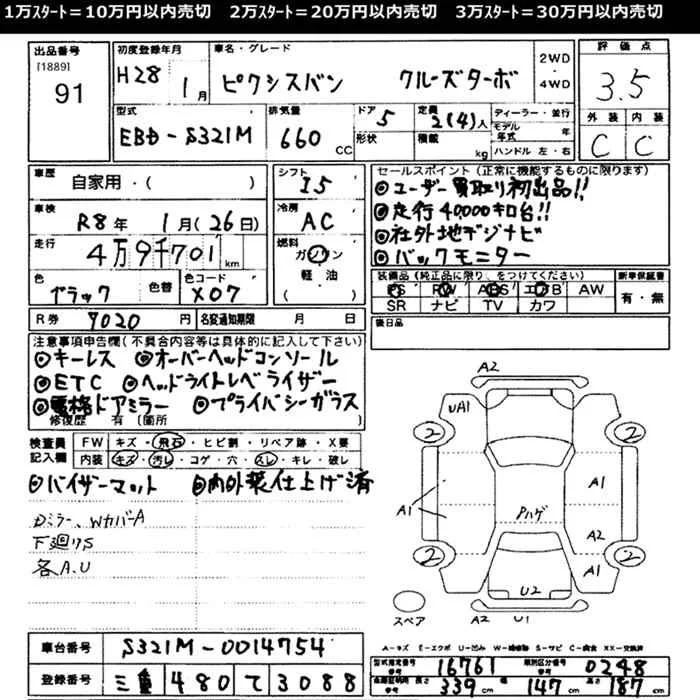 1万ｽﾀｰﾄ＝10万円以内売切　2万ｽﾀｰﾄ＝20万円以内売切　3万ｽﾀｰﾄ＝30万円以内売切
出品番号
[1889]
91
初度登録年月
H28 1月
車名・グレード
ピクシスバン クルーズターボ
2WD
・
4WD
評価点
3.5
型式
EBD-S321M
排気量
660cc
ドア
5
形状
定員
2(4)人
積載
kg
ディーラー・並行
モデル年式 年
ハンドル 左・右
外装 内装
C C
車歴
自家用・( )
シフト
I5
車検
R8年 1月(26日)
冷房
AC
走行
4万9千701km
燃料
ガソリン
軽・油
( )
色
ブラック
色替
色コード
X07
R券 9020円
名変通知期限 月 日
セールスポイント(正常に機能するものに限ります)
◎ユーザー買取り初出品!!
◎走行40000キロ台!!
◎社外地デジナビ
◎バックモニター
装備品(純正品に限り、をつけてください)
PS PW ABS エアB AW
SR ナビ TV カワ
新車保証書
有・無
後日品
注意事項申告欄(不具合内容等は具体的に記入して下さい)
◎キーレス ◎オーバーヘッドコンソール
◎ETC ◎ヘッドライトレベライザー
◎電格ドアミラー ◎プライバシーガラス
修復歴 有(箇所 )
検査員記入欄
FW キズ・飛石・ヒビ割・リペア跡・X要
内装 キズ・汚レ・コゲ・穴・スレ・キレ・破レ
◎バイザーマット ◎内外装仕上げ済
Dミラー、WカバーA
下廻りS
各A.U
A2
UA1
2
2
A1
A1
Pハゲ
A2
2
2
A1
U2
スペア
A2
U1
A-キズ E-エクボ U-凹み W-補修跡 S-サビ C-腐食 XX-交換済
車台番号 S321M-0014754
登録番号 三重 480 て 3088
型式指定番号 16761
類別区分番号 0248
長さ 339cm 幅 147cm 高さ 187cm